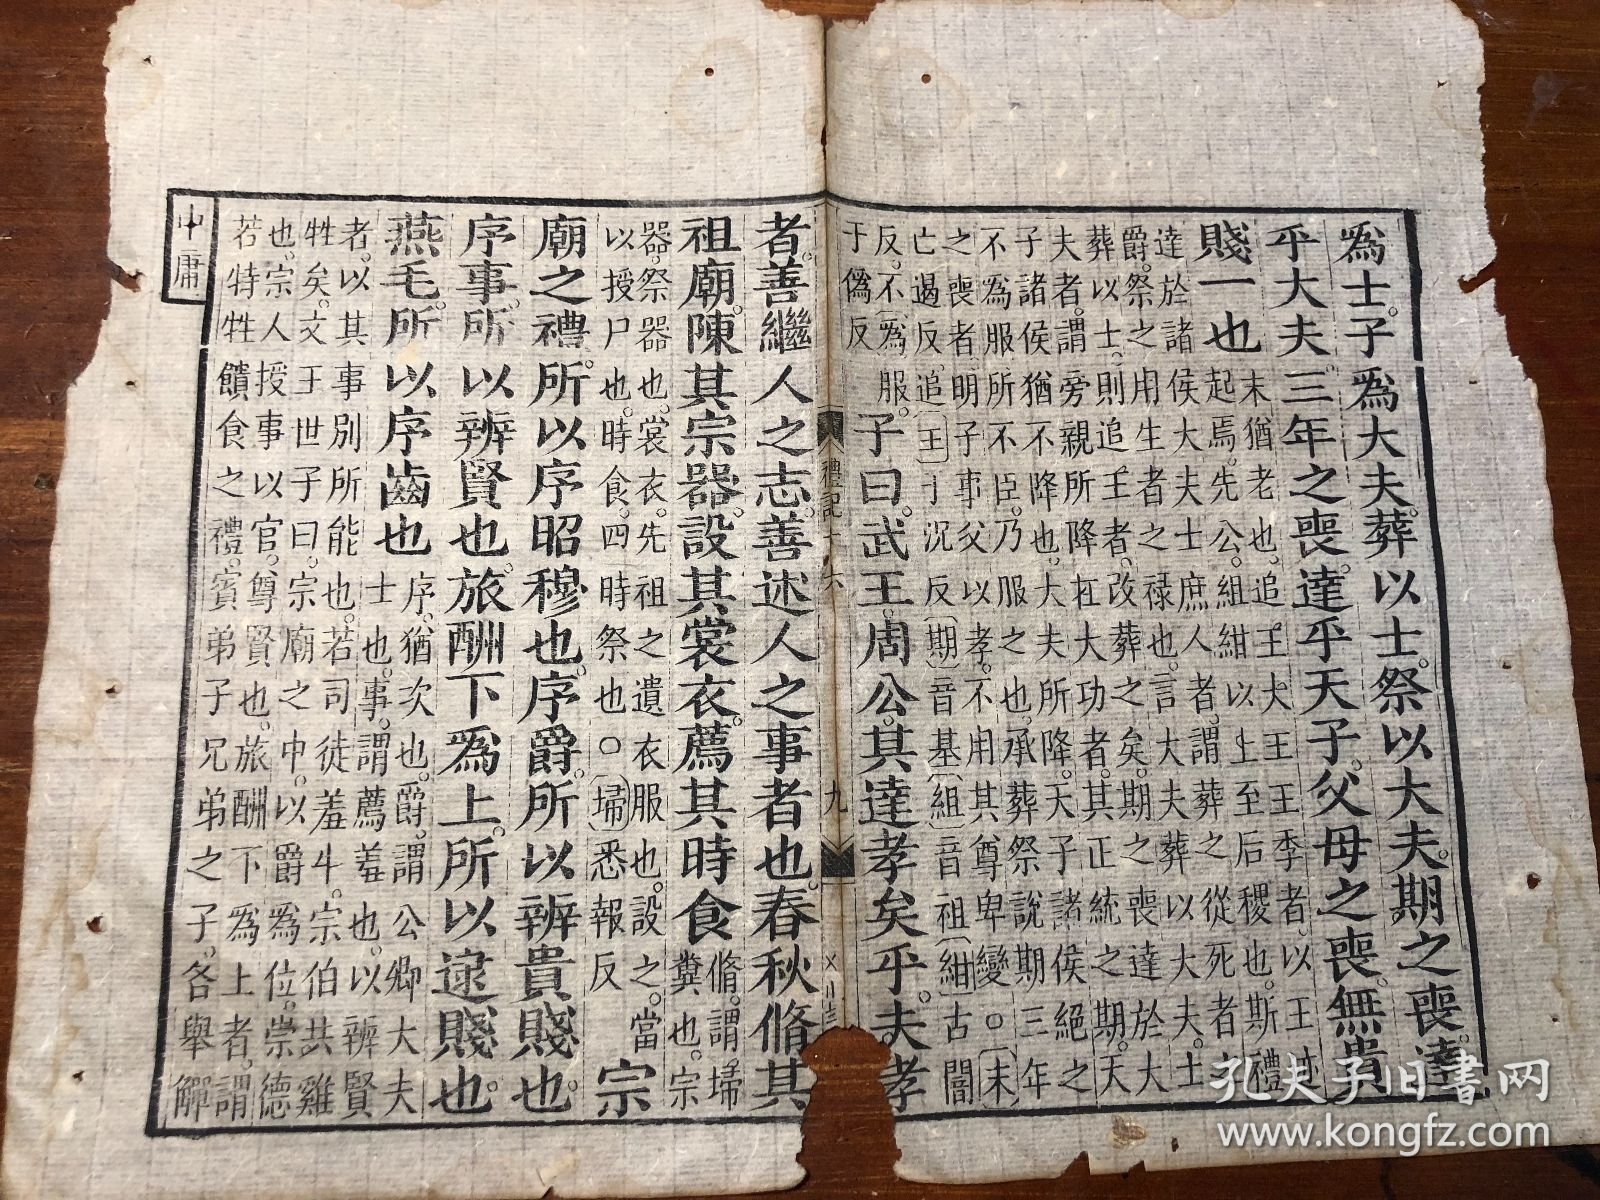 爲士。子爲大夫。葬以士。祭以大夫。期之喪。達
乎大夫。三年之喪。達乎天子。父母之喪。無貴
賤一也
末猶老也。追王大王王季者。以王迹
起焉。先公。組紺以上至后稷也。斯禮
達於諸侯大夫士庶人者。謂葬之從死者之
爵。祭之用生者之祿也。言大夫葬以大夫。士
葬以士。則追王者。改葬之矣。期之喪達於大
夫者。謂旁親所降在大功者。其正統之期。天
子諸侯猶不降也。大夫所降。天子諸侯絕之
不為服。所不臣。乃服之也。承葬祭說期三年
之喪者。明子事父以孝。不用其尊卑變。〇〔末〕
亡遏反。追〔王〕于況反〔期〕音基〔組〕音祖〔紺〕古闇
反。不〔為〕服。
于偽反
子曰。武王。周公。其達孝矣乎。夫孝
禮記十六
九
者。善繼人之志。善述人之事者也。春秋脩其
祖廟。陳其宗器。設其裳衣。薦其時食
脩。謂埽
糞也。宗
器。祭器也。裳衣。先祖之遺衣服也。設之。當
以授尸也。時食。四時祭也〇〔埽〕悉報反
宗
廟之禮。所以序昭穆也。序爵。所以辨貴賤也。
序事。所以辨賢也。旅酬下爲上。所以逮賤也。
燕毛。所以序齒也
序。猶次也。爵。謂公卿大夫
士也。事。謂薦羞也。以辨賢
者。以其事別所能也。若司徒羞牛。宗伯共雞
牲矣。文王世子曰。宗廟之中。以爵爲位。崇德
也。宗人授事以官。尊賢也。旅酬下爲上者。謂
若特牲饋食之禮。賓弟子兄弟之子。各舉觶
中庸
孔夫子旧書网
www.kongfz.com